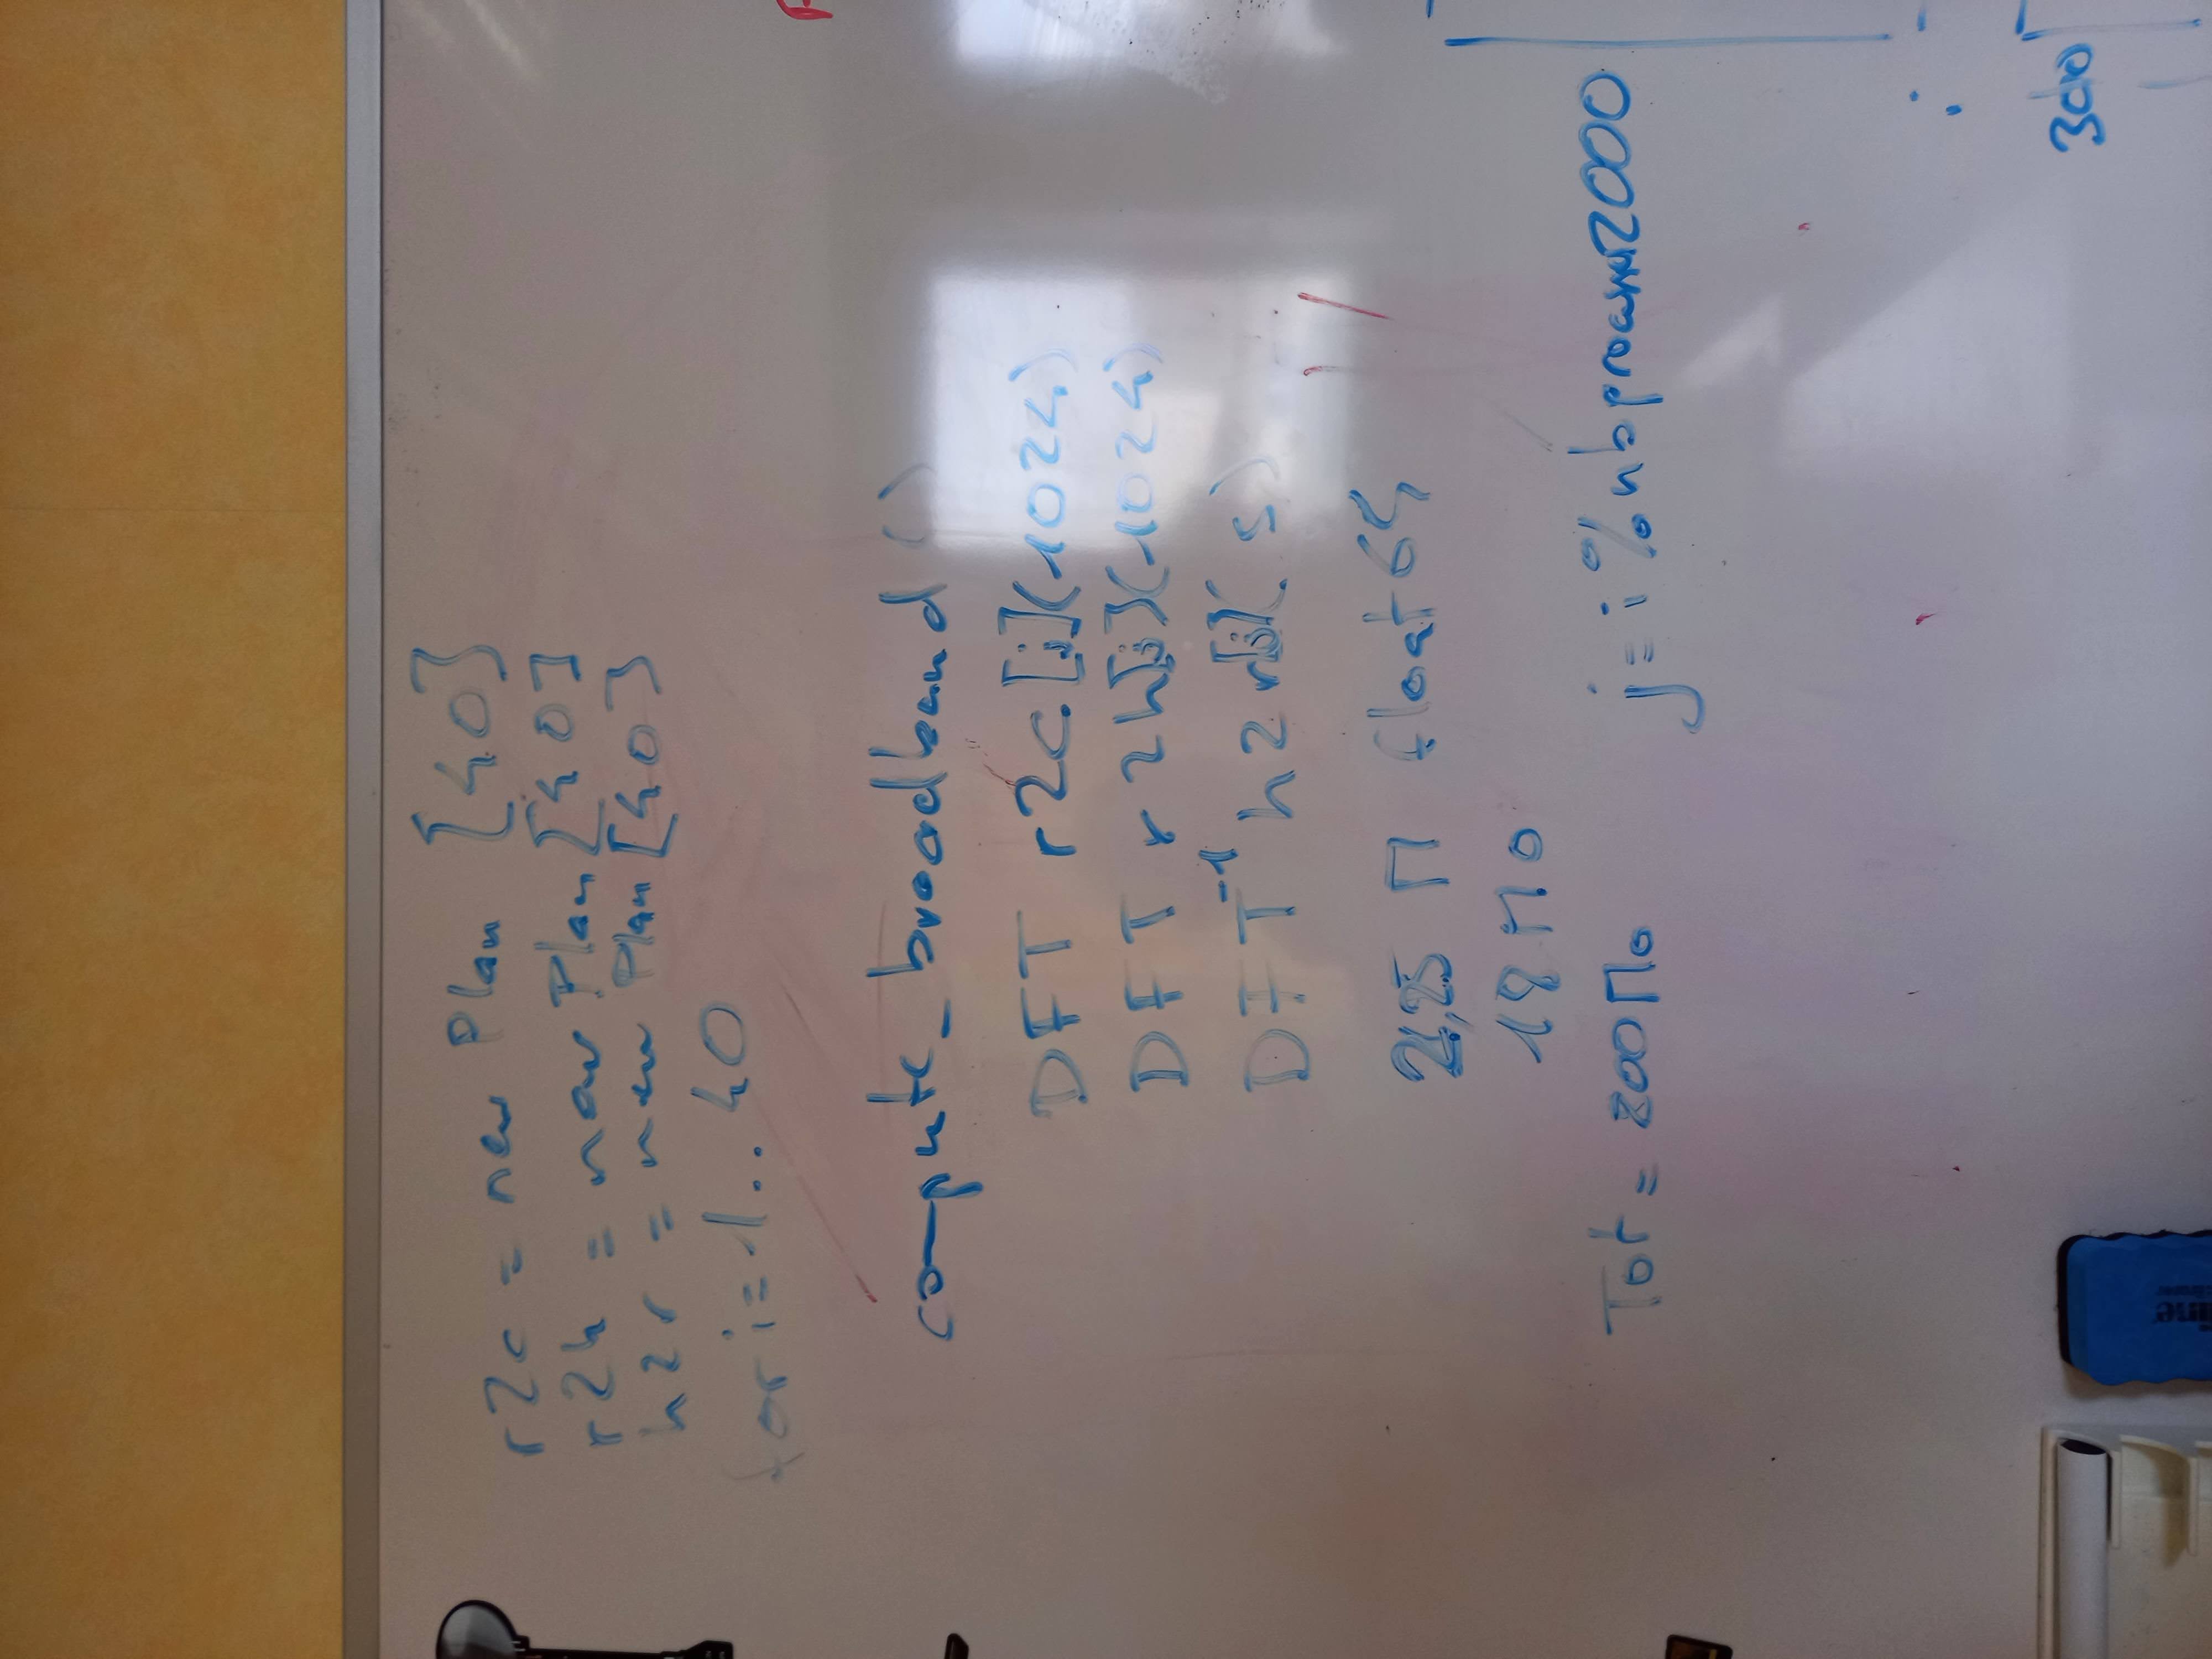 r2c = new Plan [40]
r2h = new Plan [40]
h2r = new Plan [40]
for i = 1 .. 40
compute_broadband ()
DFT r2c [j] (1024)
DFT r2h [j] (1024)
DFT⁻¹ h2r [j] ( s )
2,25 M float64
18 Mo
Tot = 800 Mo
j = i % nb 2000
300